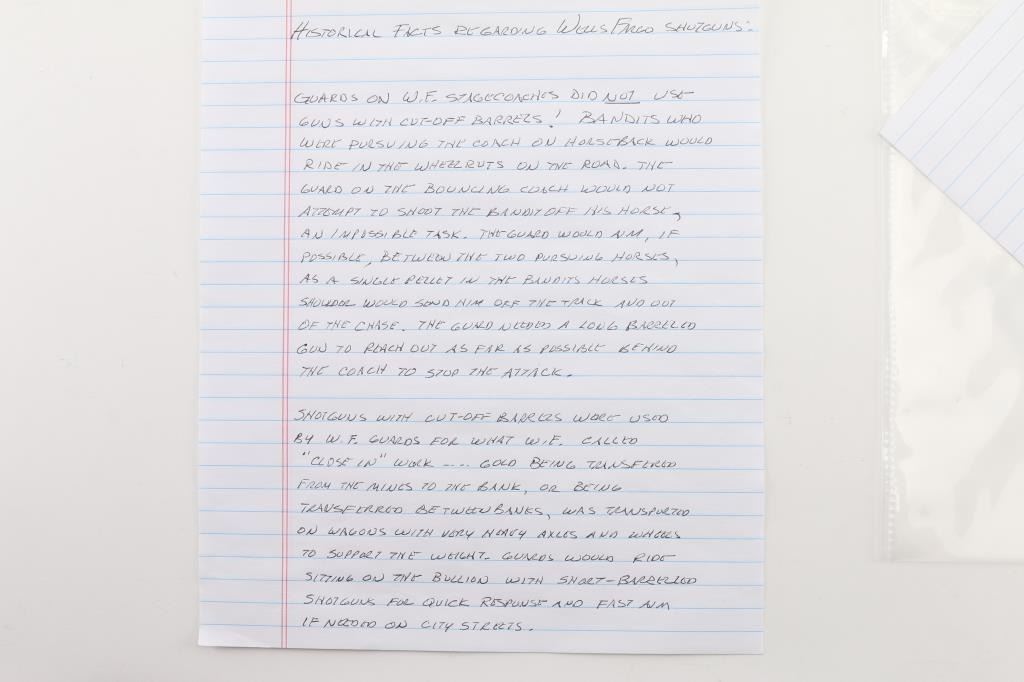 HISTORICAL FACTS REGARDING WELLS FARGO SHOTGUNS:
GUARDS ON W.F. STAGECOACHES DID NOT USE
GUNS WITH CUT-OFF BARRELS! BANDITS WHO
WERE PURSUING THE COACH ON HORSEBACK WOULD
RIDE IN THE WHEELRUTS ON THE ROAD. THE
GUARD ON THE BOUNCING COACH WOULD NOT
ATTEMPT TO SHOOT THE BANDIT OFF HIS HORSE,
AN IMPOSSIBLE TASK. THE GUARD WOULD AIM, IF
POSSIBLE, BETWEEN THE TWO PURSUING HORSES,
AS A SINGLE PELLET IN THE BANDITS HORSES
SHOULDER WOULD SEND HIM OFF THE TRACK AND OUT
OF THE CHASE. THE GUARD NEEDED A LONG BARRELLED
GUN TO REACH OUT AS FAR AS POSSIBLE BEHIND
THE COACH TO STOP THE ATTACK.
SHOTGUNS WITH CUT-OFF BARRELS WERE USED
BY W.F. GUARDS FOR WHAT W.F. CALLED
"CLOSE IN" WORK ---- GOLD BEING TRANSFERED
FROM THE MINES TO THE BANK, OR BEING
TRANSFERRED BETWEEN BANKS, WAS TRANSPORTED
ON WAGONS WITH VERY HEAVY AXLES AND WHEELS
TO SUPPORT THE WEIGHT. GUARDS WOULD RIDE
SITTING ON THE BULLION WITH SHORT-BARRELLED
SHOTGUNS FOR QUICK RESPONSE AND FAST AIM
IF NEEDED ON CITY STREETS.